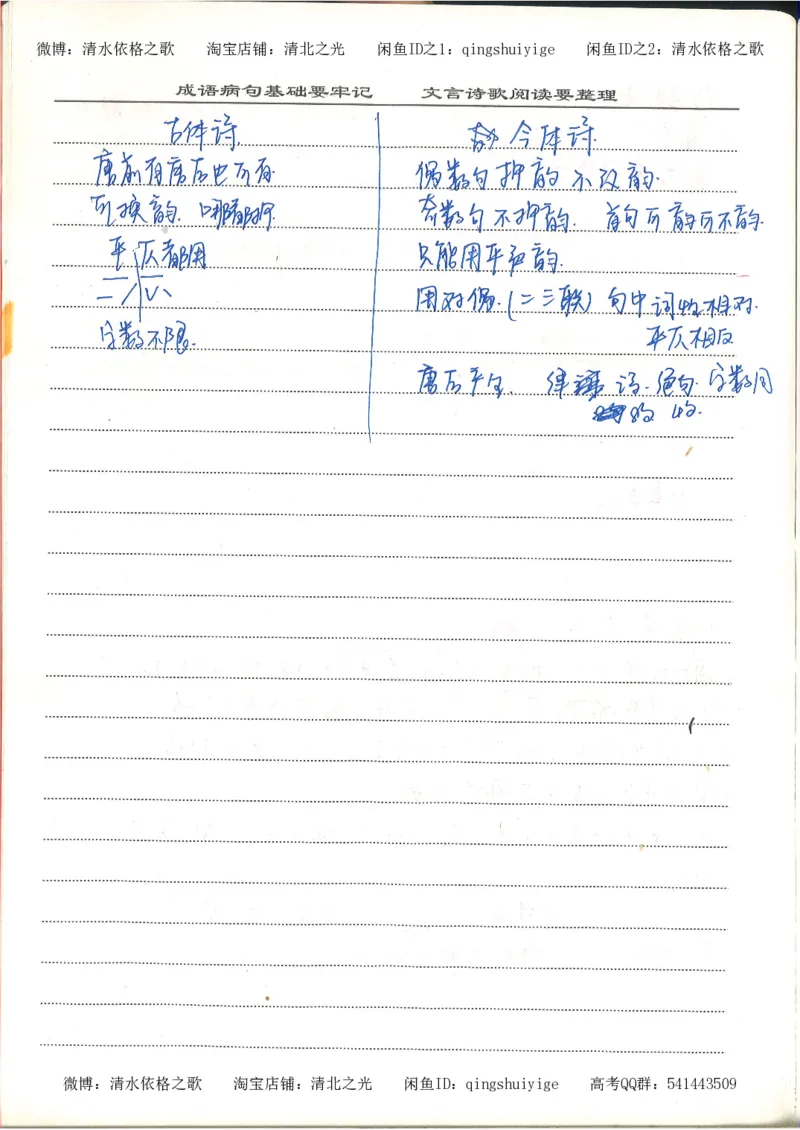 微博：清水依格之歌 淘宝店铺：清北之光 闲鱼ID之1：qingshuiyige 闲鱼ID之2：清水依格之歌
成语病句基础要牢记 文言诗歌阅读要整理
古体诗
唐前有唐后也可有
可换韵. 哪都可.
平仄都用
一 一
二 / \ 、
字数不限.
今体诗
偶数句押韵 不改韵.
奇数句不押韵. 首句可韵可不韵.
只能用平声韵.
用对偶.(二三联) 句中词性相对.
平仄相反
唐后产生. 律诗. 绝句. 字数同
8句 4句.
微博：清水依格之歌 淘宝店铺：清北之光 闲鱼ID：qingshuiyige 高考QQ群：541443509